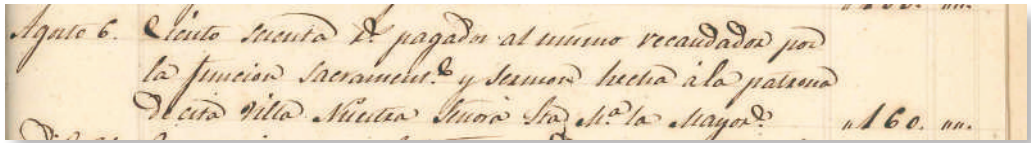 Agosto 6. Ciento sesenta rs. pagados al mismo recaudador por
la funcion sacrament.l y sermon hecha á la patrona
de esta Villa Nuestra Señora Sta. M.a la Mayor. "160. "".